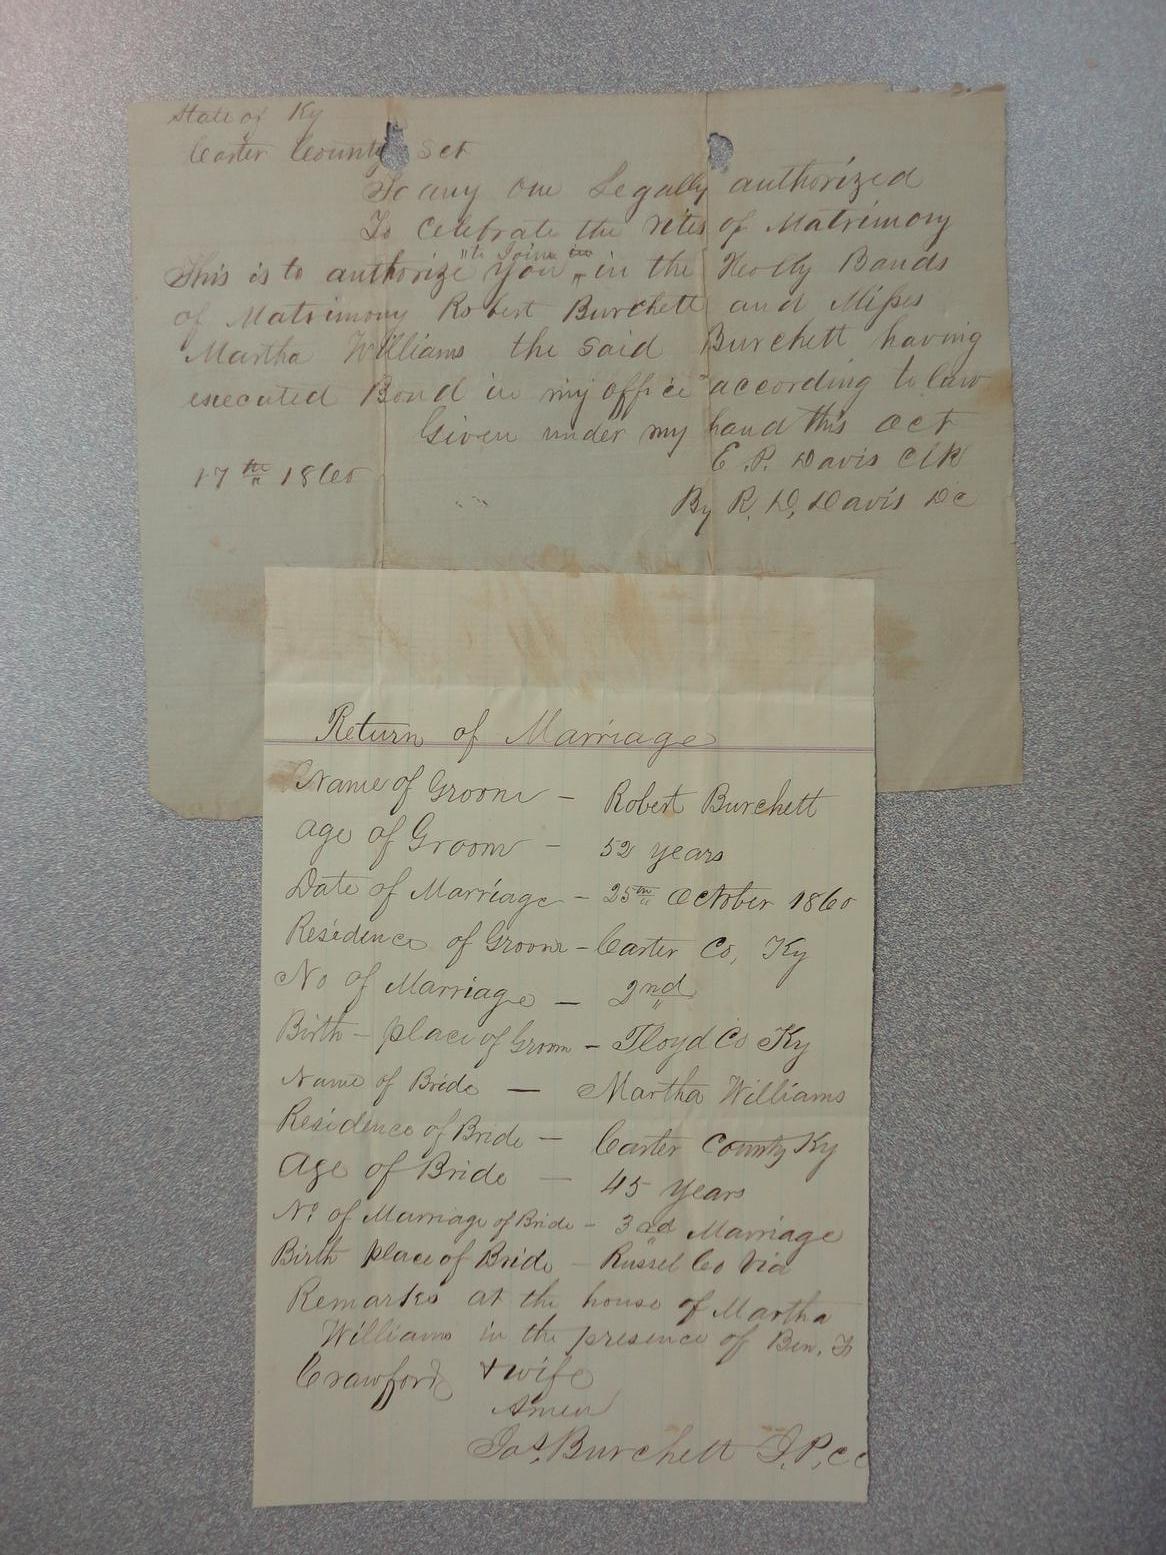 State of Ky
Carter County Sct
To any one Legally authorized
To Celebrate the rites of Matrimony
"to Join in
This is to authorize you " in the Holly Bands
of Matrimony Robert Burchett and Misses
Martha Williams the said Burchett having
executed Bond in my office according to law
Given under my hand this Oct
17th 1860
E. P. Davis Clk
By R. D. Davis Dc
Return of Marriage
Name of Groom - Robert Burchett
Age of Groom - 52 years
Date of Marriage - 25th October 1860
Residence of Groom - Carter Co, Ky
No of Marriage - 2nd
Birth - place of Groom - Floyd Co Ky
Name of Bride - Martha Williams
Residence of Bride - Carter County Ky
Age of Bride - 45 years
No of Marriage of Bride - 3rd Marriage
Birth place of Bride - Russel Co Via
Remarks at the house of Martha
Williams in the presence of Ben. F
Crawford & wife
Amen
Jas. Burchett J.P.C.C